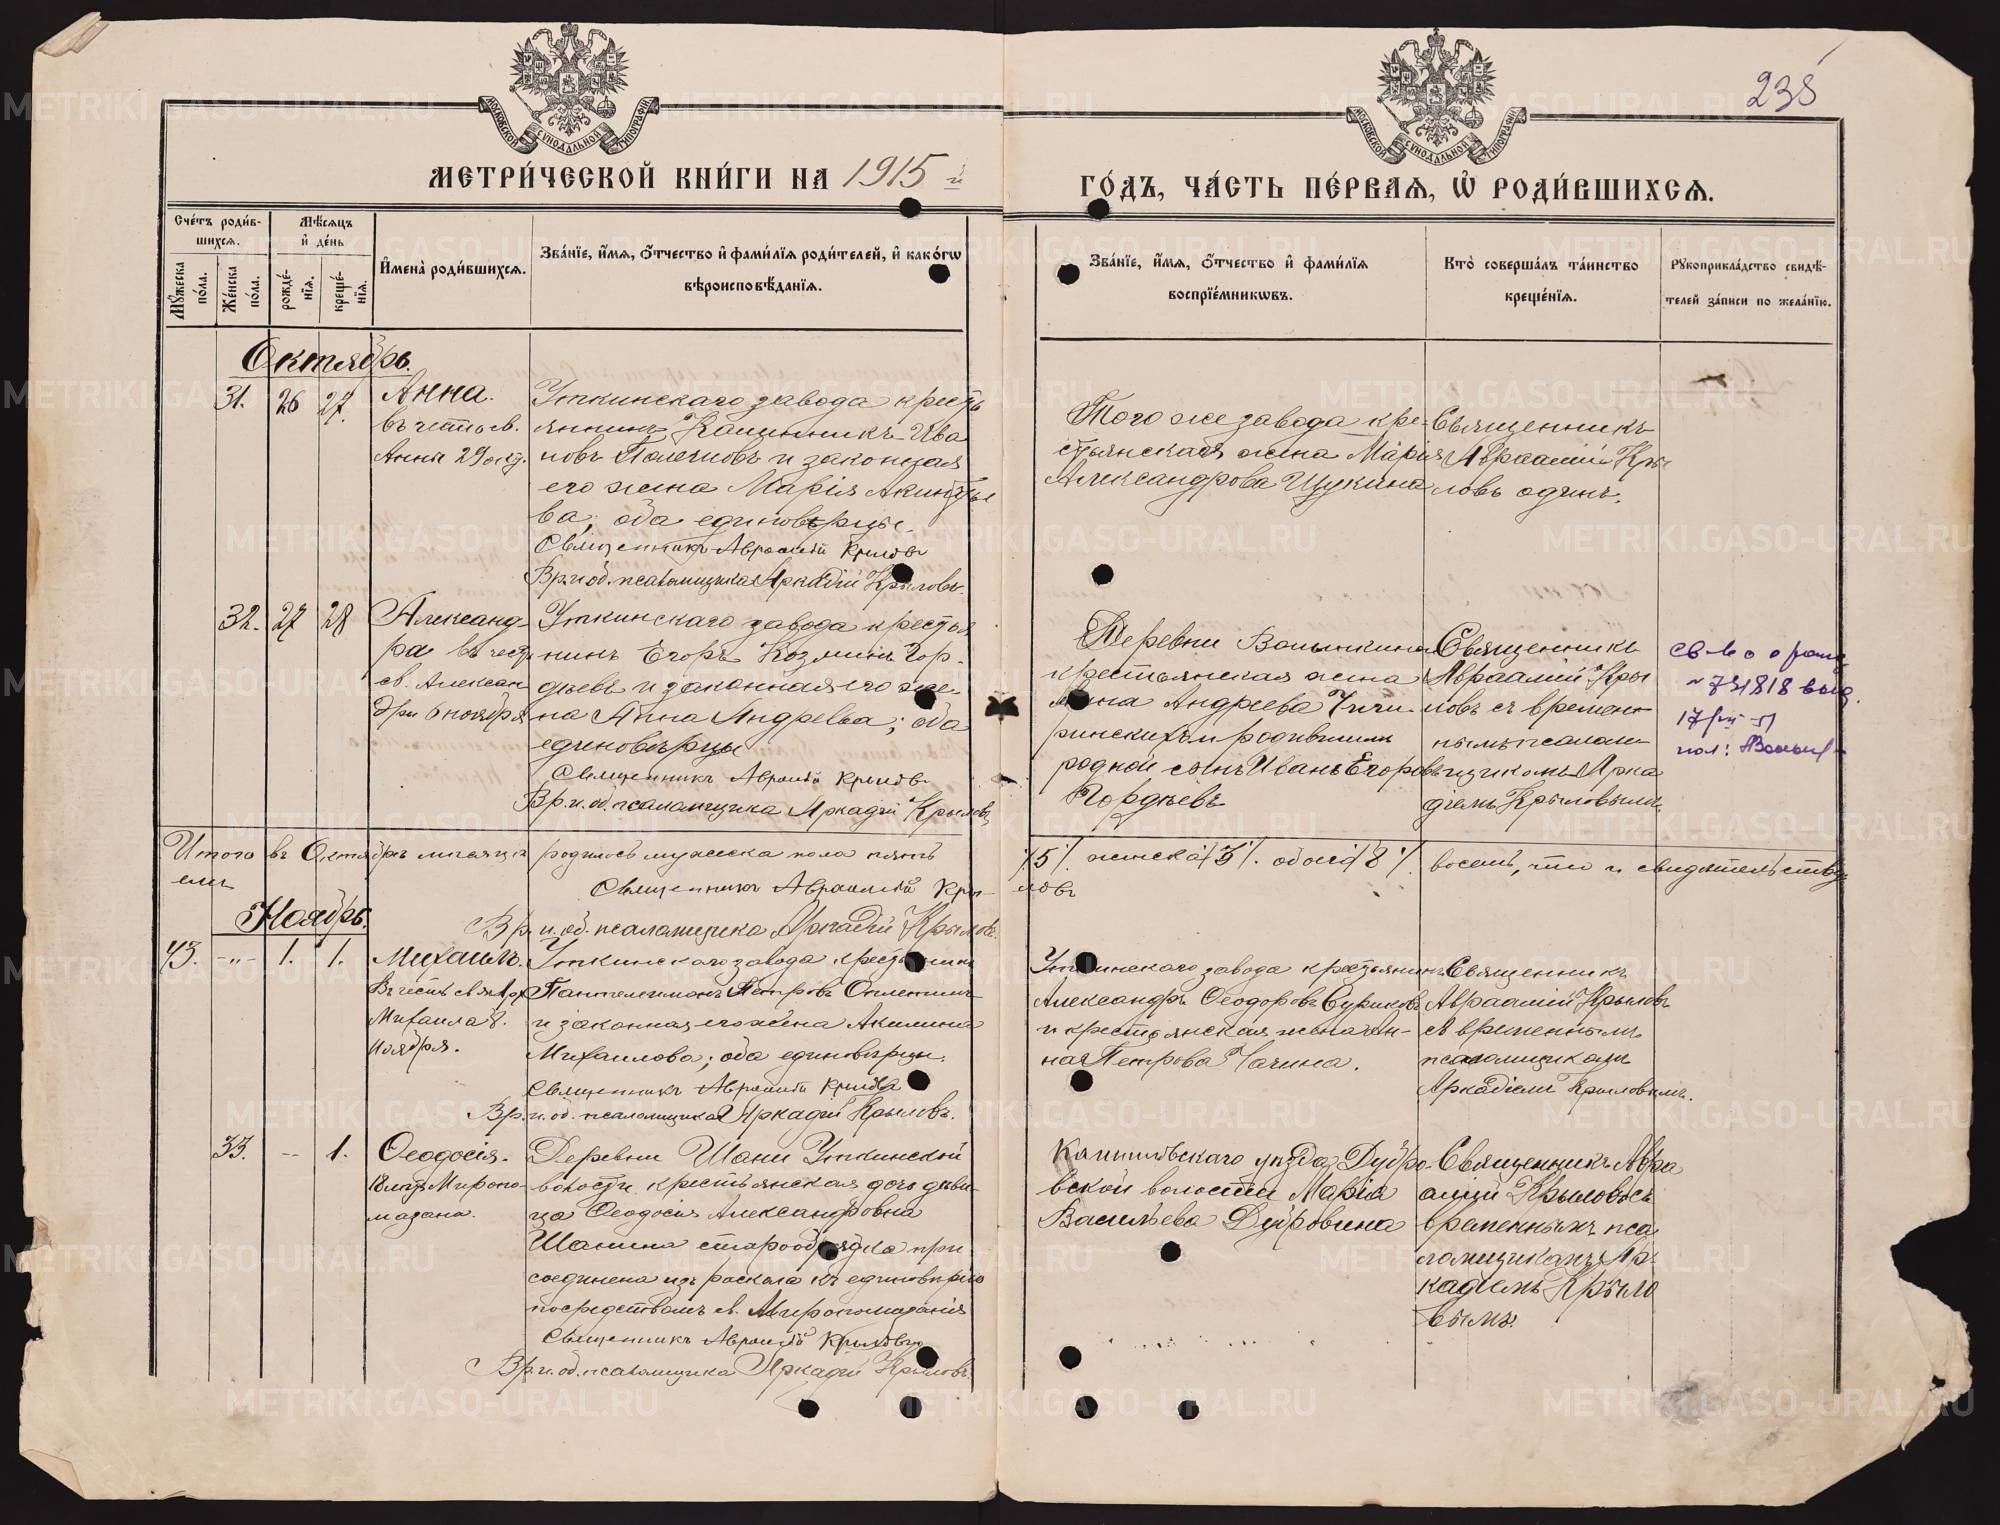 235
МОСКОВСКОЙ СѴНОДАЛЬНОЙ ТИПОГРАФІИ
МОСКОВСКОЙ СѴНОДАЛЬНОЙ ТИПОГРАФІИ
МЕТРИ́ЧЕСКОЙ КНИ́ГИ НА 1915 й
ГО́ДЪ, ЧА́СТЬ ПЕ́РВАѦ, Ѡ҆ РОДИ́ВШИХСѦ.
Сче́тъ роди́в-
шихсѧ.
Мꙋ́жеска
по́ла.
Же́нска
по́ла.
Мѣ́сѧцъ
и҆ де́нь
рожде́-
нїѧ.
креще́-
нїѧ.
И҆мена̀ роди́вшихсѧ.
Зва́нїе, и҆́мѧ, ѻ҆́тчество и҆ фами́лїѧ роди́телей, и҆ како́гѡ
вѣроисповѣ́данїѧ.
Зва́нїе, и҆́мѧ, ѻ҆́тчество и҆ фами́лїѧ
воспрїе́мникѡвъ.
Кто̀ соверша́лъ та́инство
креще́нїѧ.
Рꙋкоприкла́дство свидѣ́-
телей за́писи по жела́нїю.
Октябрь.
31. 26 27.
Анна.
въ честь св.
Анны 29 окт.
Уткинскаго завода кресть
янинъ Ива
новъ и законная
его жена Марія Акинфье
ва, оба единовѣрцы.
Священникъ Авраамій Крыловъ
Вр. и. об. псаломщика Аркадій Крыловъ.
Того же завода кре-
стьянская жена Марія
Александрова Щукина
Священникъ
Авраамій Кры
ловъ одинъ.
32. 27 28
Александ-
ра въ честь
св. Алексан
дры 6 ноября
Уткинскаго завода крестья
нинъ Егоръ Козминъ Гор-
дѣевъ и законная его же-
на Анна Андреева; оба
единовѣрцы
Священникъ Авраамій Крыловъ
Вр. и. об. псаломщика Аркадій Крыловъ
Деревни
крестьянская жена
Андреева
родной сынъ Иванъ Егоровъ
Гордѣевъ
Священникъ
Авраамій Кры
ловъ съ времен-
нымъ псалом-
щикомъ Арка
діемъ Крыловымъ.
св-во о рожд
№ 731818 выд.
Итого въ Октябрѣ мѣсяцѣ родилось мужеска пола пять /5/. женска /3/. обоего /8/. восемь, что и свидѣтельству
емъ
Священникъ Авраамій Кры-
ловъ
Вр. и. об. псаломщика Аркадій Крыловъ.
Ноябрь.
43. -„- 1. 1.
Михаилъ.
Въ честь св. Арх
Михаила 8.
ноября.
Уткинскаго завода крестьянинъ
Пантелеимонъ Петровъ
и законная его жена Акилина
Михаилова; оба единовѣрцы.
Священникъ Авраамій Крыловъ
Вр. и. об. псаломщика Аркадій Крыловъ.
Уткинскаго завода крестьянинъ
Александръ Ѳеодоровъ Суриковъ
и крестьянская жена Ан-
на Петрова Чагина.
Священникъ
Авраамій Крыловъ
съ временнымъ
псаломщикомъ
Аркадіемъ Крыловымъ.
33. -- 1.
Ѳеодосія.
18 лѣтъ Миропо-
мазана.
Деревни Шани Уткинской
волости крестьянская дочь дѣви-
ца Ѳеодосія Александровна
Шанина старообрядка при
соединена изъ раскола къ единовѣрію
посредствомъ св. Миропомазанія
Священникъ Авраамій Крыловъ
Вр. и. об. псаломщика Аркадій Крыловъ.
уѣзда, Дубро-
вской волости Марія
Васильева Дубровина
Священникъ Авра
амій Крыловъ съ
временнымъ пса
ломщикомъ Ар-
кадіемъ Крыло
вымъ.
METRIKI.GASO-URAL.RU